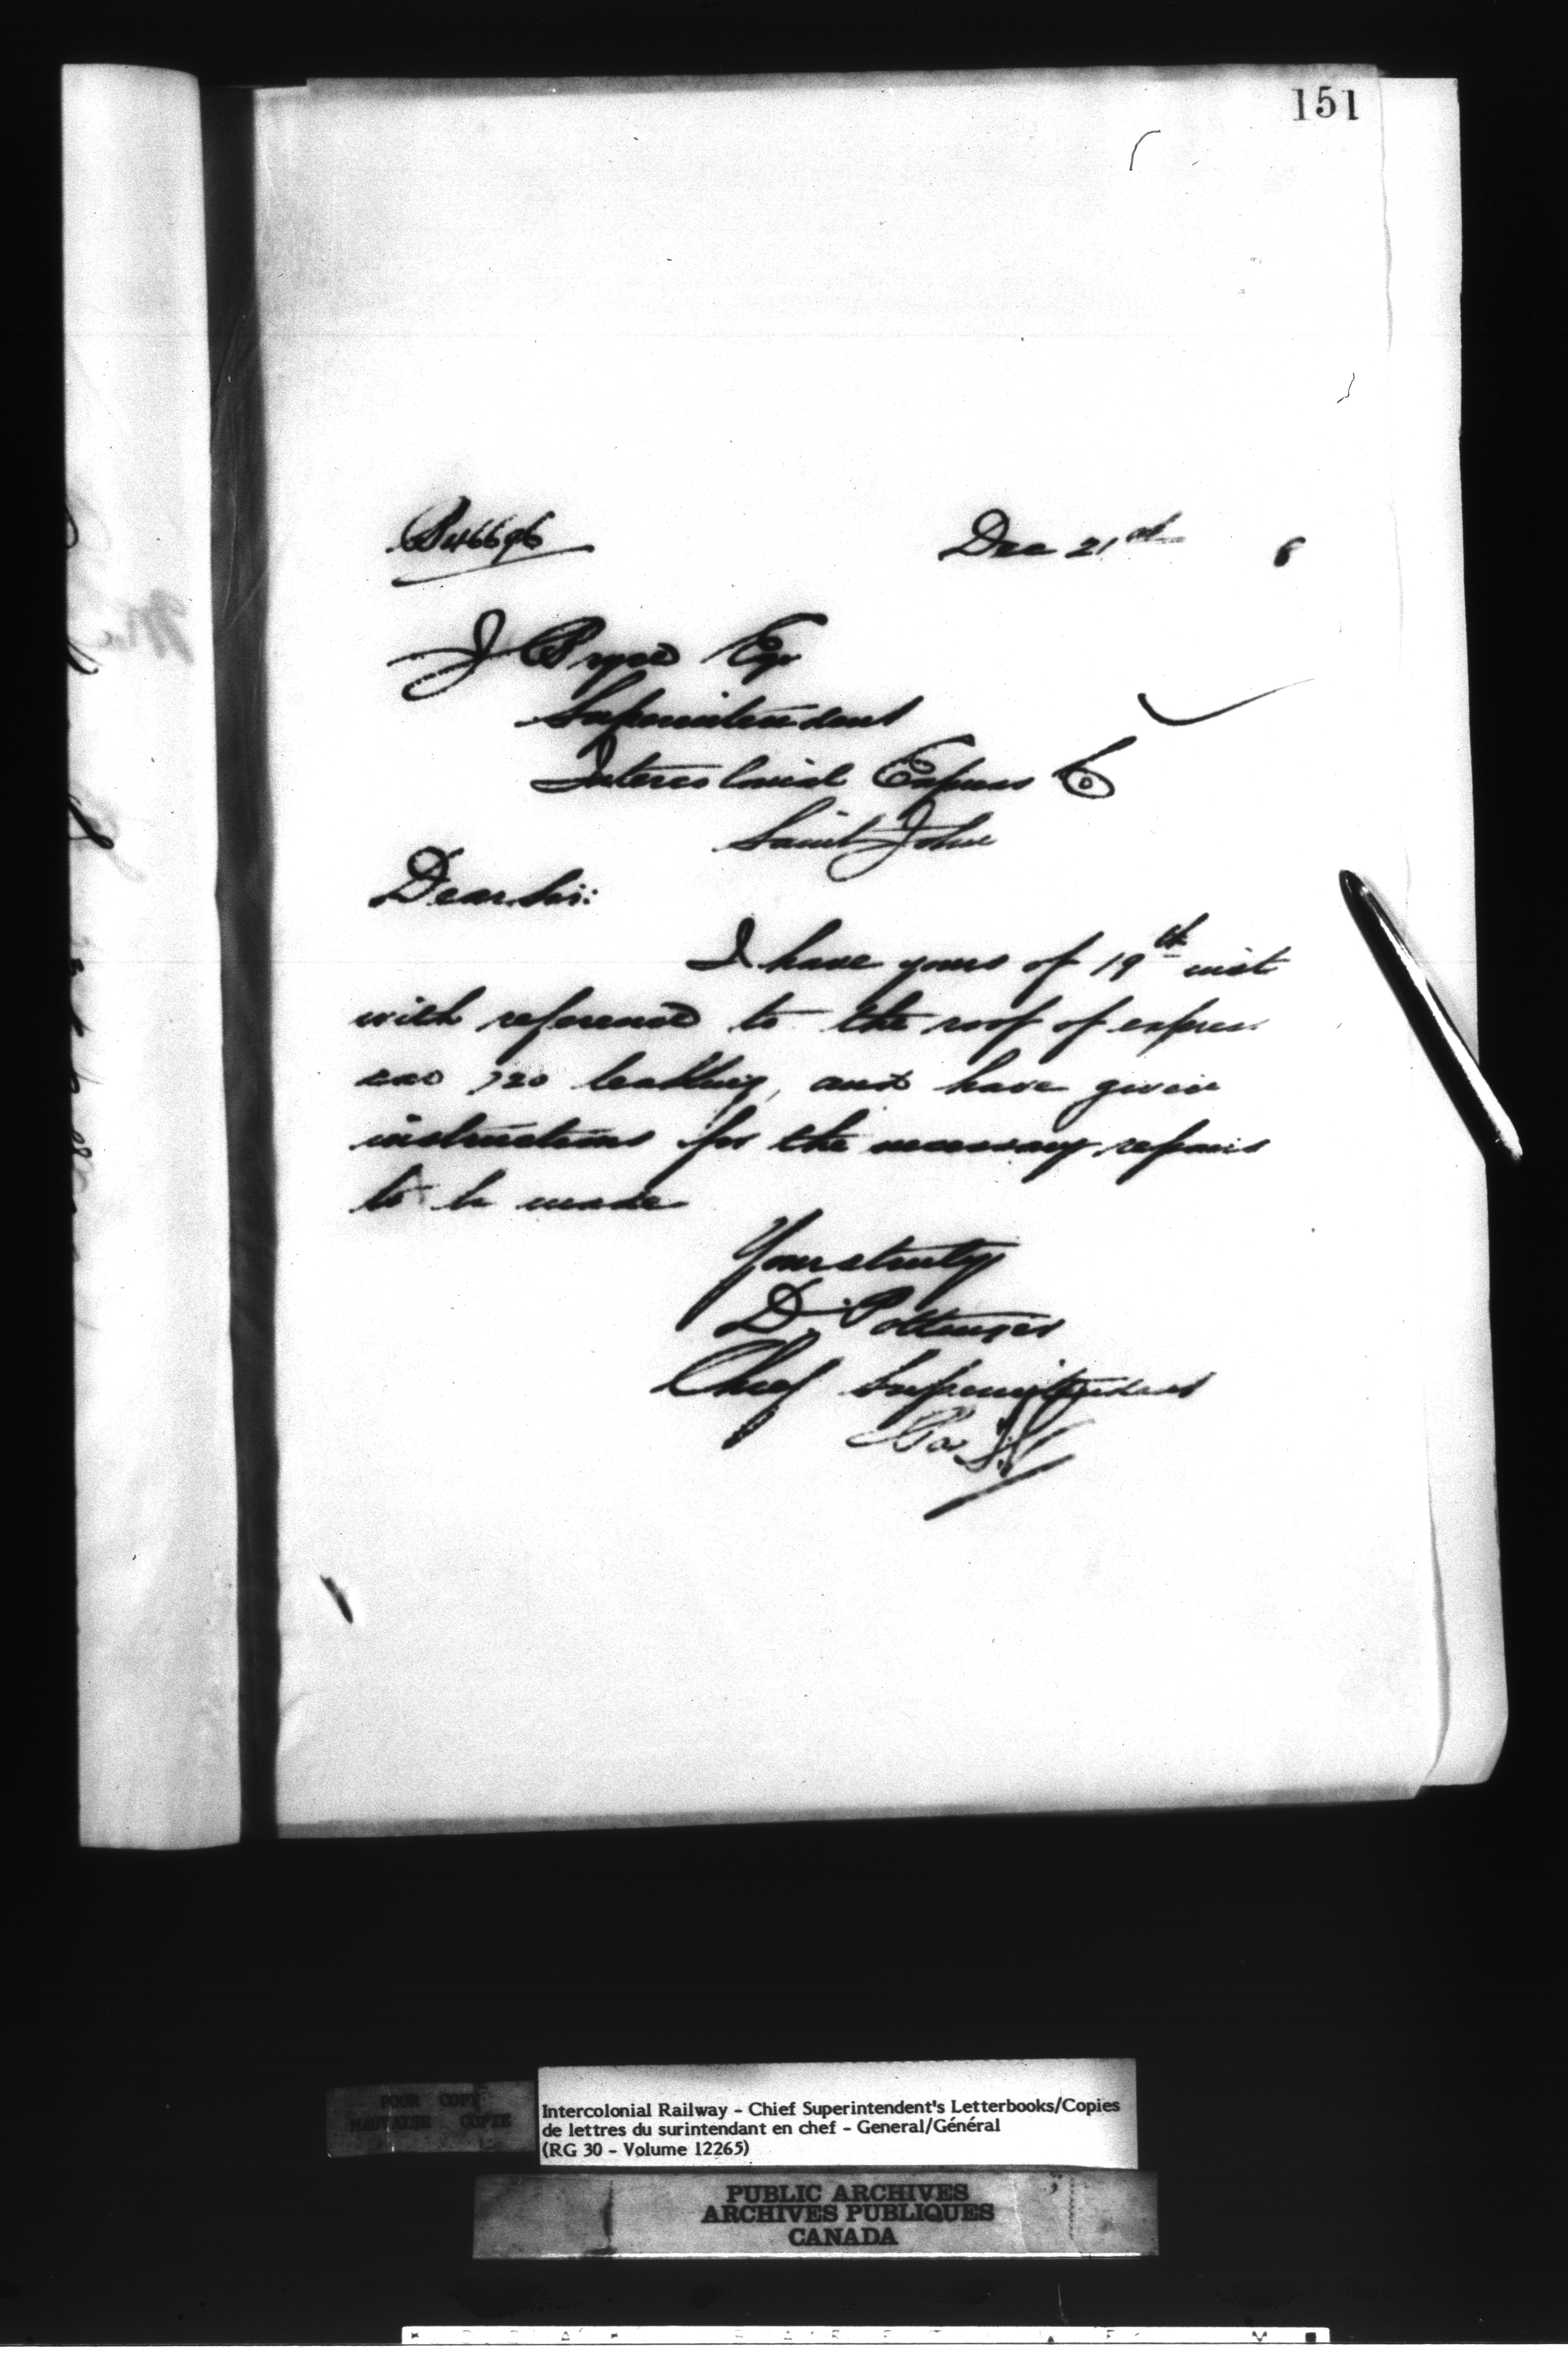 151
B46696
Dec 21st 8
J Bryce Esq
Superintendent
Intercolonial Express Co
Saint John
Dear Sir:
I have yours of 19th inst
with reference to the roof of express
car 720 leaking, and have given
instructions for the necessary repairs
to be made
Yours truly
D. Pottinger
Chief Superintendent
POOR COPY
MAUVAISE COPIE
Intercolonial Railway - Chief Superintendent's Letterbooks/Copies
de lettres du surintendant en chef - General/Général
(RG 30 - Volume 12265)
PUBLIC ARCHIVES
ARCHIVES PUBLIQUES
CANADA